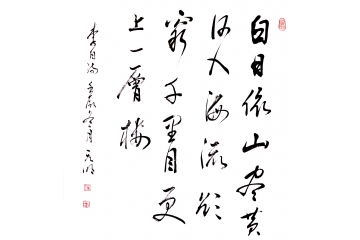 白日依山尽黄
河入海流欲
窮千里目更
上一層楼
李白詩 冬月